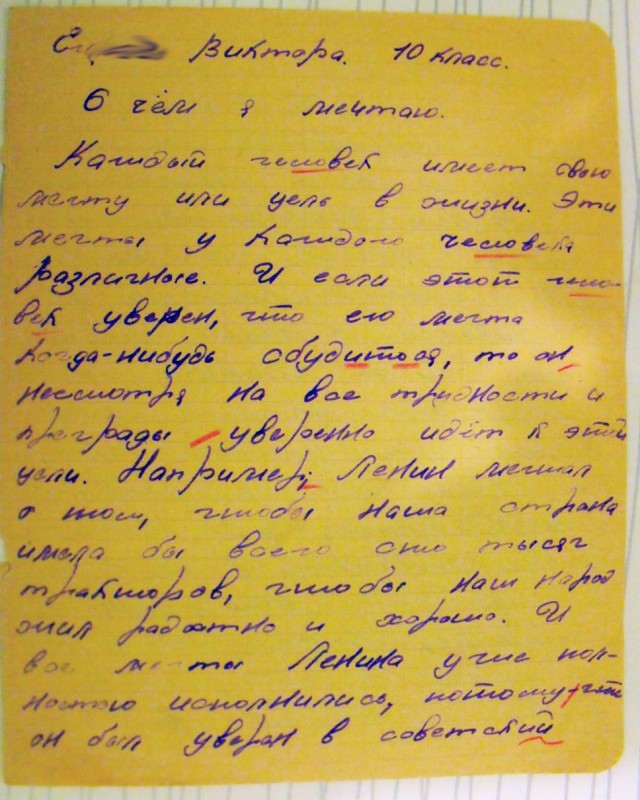 Виктора. 10 класс.
О чём я мечтаю.
Каждый человек имеет свою
мечту или цель в жизни. Эти
мечты у каждого человека
различные. И если этот чело-
век уверен, что его мечта
когда-нибудь сбудитося, то он
несмотря на все трудности и
преграды уверенно идёт к этой
цели. Например, Ленин мечтал
о том, чтобы наша страна
имела бы всего сто тысяч
тракторов, чтобы наш народ
жил радостно и хорошо. И
все мечты Ленина уже пол-
ностью исполнились, потому что
он был уверен в советский